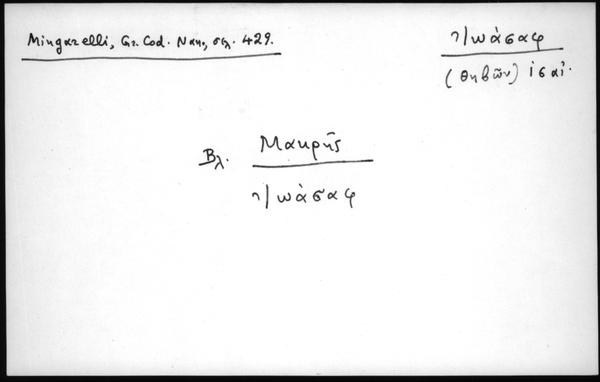 Mingarelli, Gr. Cod. Nan., σελ. 429.
Ἰωάσαφ
(Θηβῶν) ις αἰ.
Βλ. Μακρῆς
Ἰωάσαφ